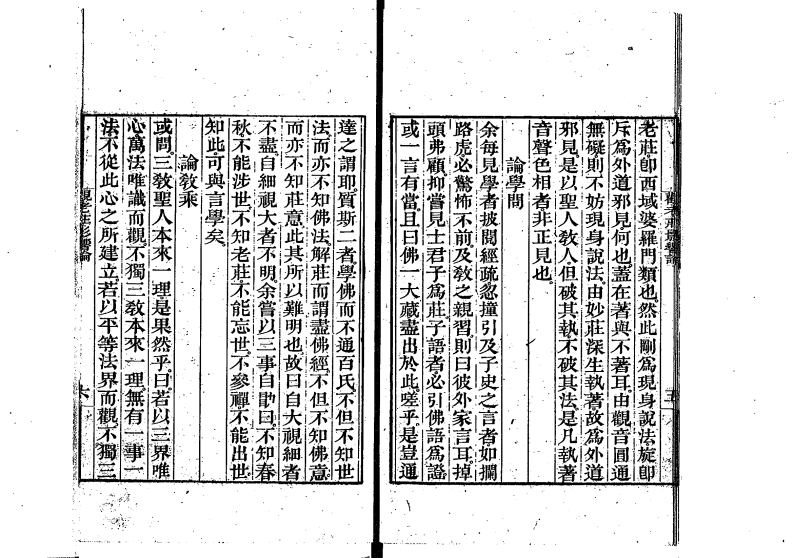 老莊卽西域婆羅門類也。然此剛爲現身說法。旋卽
斥爲外道邪見。何也。蓋在著與不著耳。由觀音圓通
無礙。則不妨現身說法。由妙莊深生執著。故爲外道
邪見。是以聖人敎人。但破其執。不破其法。是凡執著
音聲色相者。非正見也。
論學問
余每見學者披閱經疏。忽撞引及子史之言者。如攔
路虎。必驚怖不前。及敎之親習。則曰。彼外家言耳。掉
頭弗顧。抑嘗見士君子爲莊子語者。必引佛語爲證。
或一言有當。且曰。佛一大藏盡出於此。嗟乎。是豈通
達之謂耶。質斯二者。學佛而不通百氏。不但不知世
法。而亦不知佛法。解莊而謂盡佛經。不但不知佛意。
而亦不知莊意。此其所以難明也。故曰。自大視細者
不盡。自細視大者不明。余嘗以三事自勖曰。不知春
秋。不能涉世。不知老莊。不能忘世。不參禪。不能出世。
知此。可與言學矣。
論敎乘
或問。三敎聖人本來一理。是果然乎。曰。若以三界唯
心。萬法唯識而觀。不獨三敎本來一理。無有一事一
法。不從此心之所建立。若以平等法界而觀。不獨三
觀老莊影響論
五
觀老莊影響論
六